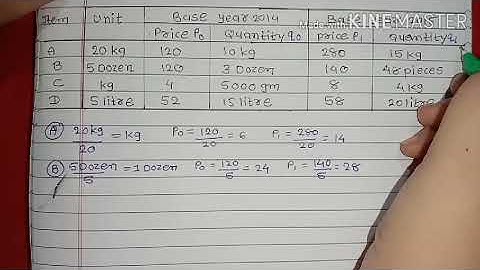 Item Unit Base year 2014 Ba
Price P₀ Quantity q₀ price P₁ Quantity q₁
A 20 kg 120 10 kg 280 15 kg
B 5 Dozen 120 3 Dozen 140 48 pieces
C kg 4 5000 gm 8 4 kg
D 5 litre 52 15 litre 58 20 litre
Ⓐ 20kg/20 = kg P₀ = 120/20 = 6 P₁ = 280/20 = 14
Ⓑ 5 Dozen/5 = 1 Dozen P₀ = 120/5 = 24 P₁ = 140/5 = 28
Made with KINEMASTER